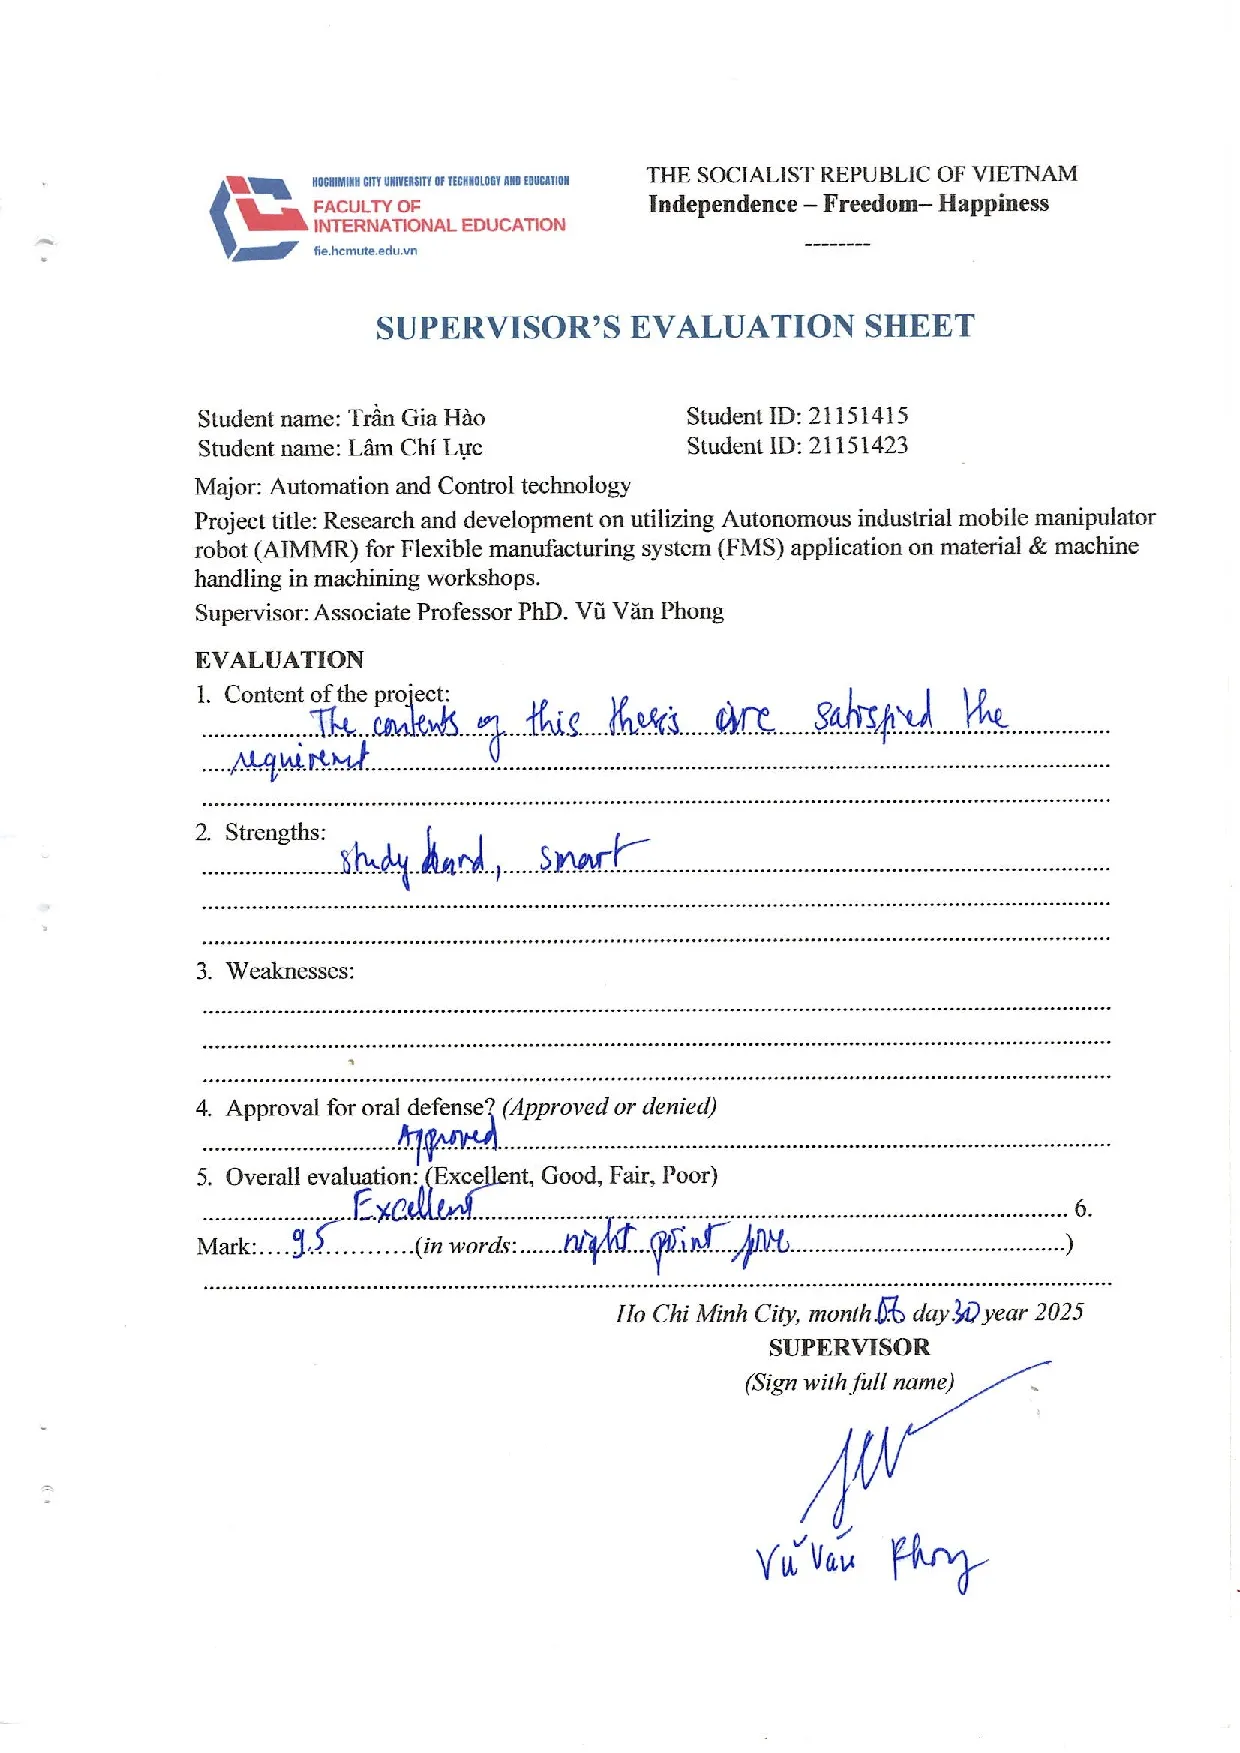 HOCHIMINH CITY UNIVERSITY OF TECHNOLOGY AND EDUCATION
FACULTY OF
INTERNATIONAL EDUCATION
fie.hcmute.edu.vn
THE SOCIALIST REPUBLIC OF VIETNAM
Independence – Freedom– Happiness
--------
SUPERVISOR'S EVALUATION SHEET
Student name: Trần Gia Hào Student ID: 21151415
Student name: Lâm Chí Lực Student ID: 21151423
Major: Automation and Control technology
Project title: Research and development on utilizing Autonomous industrial mobile manipulator
robot (AIMMR) for Flexible manufacturing system (FMS) application on material & machine
handling in machining workshops.
Supervisor: Associate Professor PhD. Vũ Văn Phong
EVALUATION
1. Content of the project:
The contents of this thesis are satisfied the
requirement
2. Strengths:
study hard, smart
3. Weaknesses:
4. Approval for oral defense? (Approved or denied)
Approved
5. Overall evaluation: (Excellent, Good, Fair, Poor)
Excellent 6.
Mark: 9.5 (in words: night point five)
Ho Chi Minh City, month 06 day 30 year 2025
SUPERVISOR
(Sign with full name)
Vũ Văn Phong